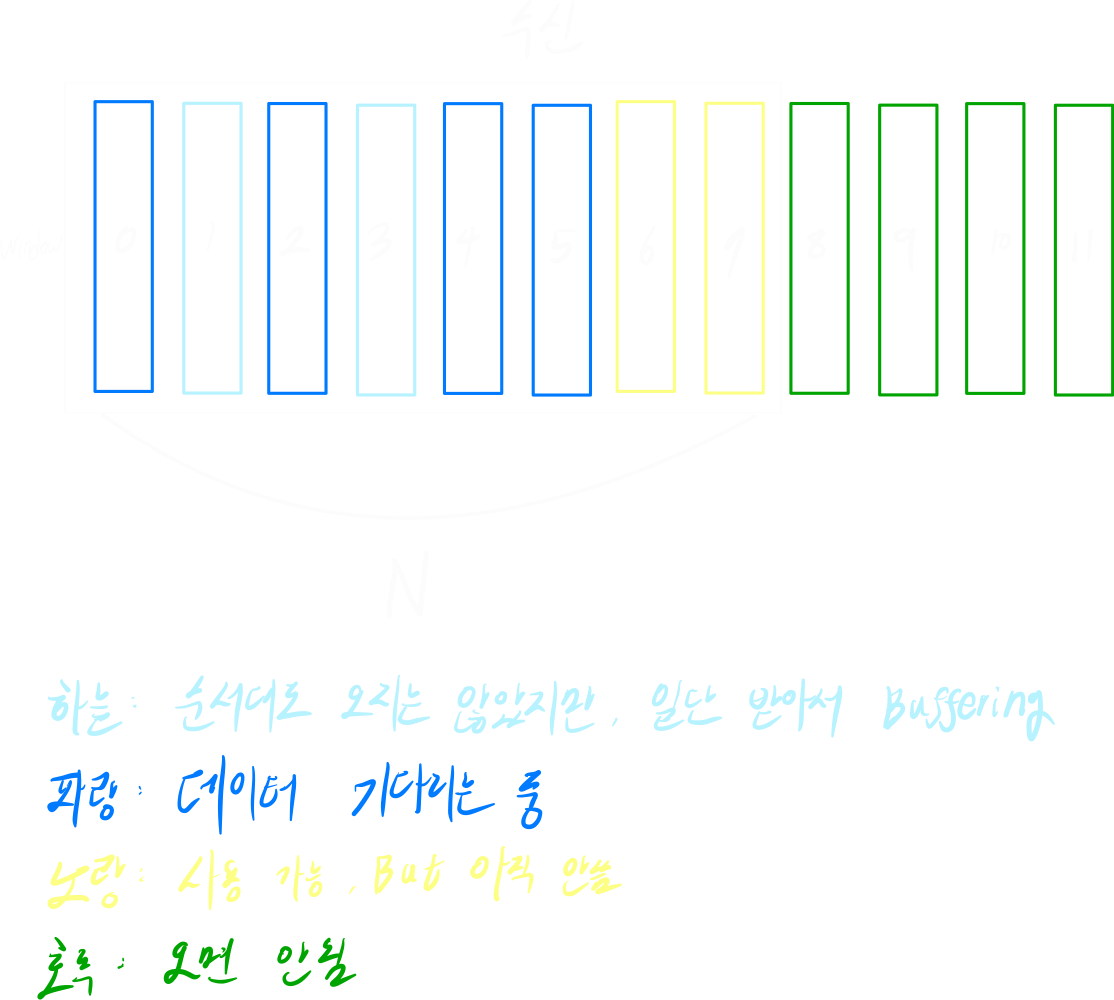 수신
Window 0 1 2 3 4 5 6 7 8 9 10 11
N
하늘: 순서대로 오지는 않았지만, 일단 받아서 Buffering
파랑: 데이터 기다리는 중
노랑: 사용 가능, But 아직 안씀
초록: 오면 안됨